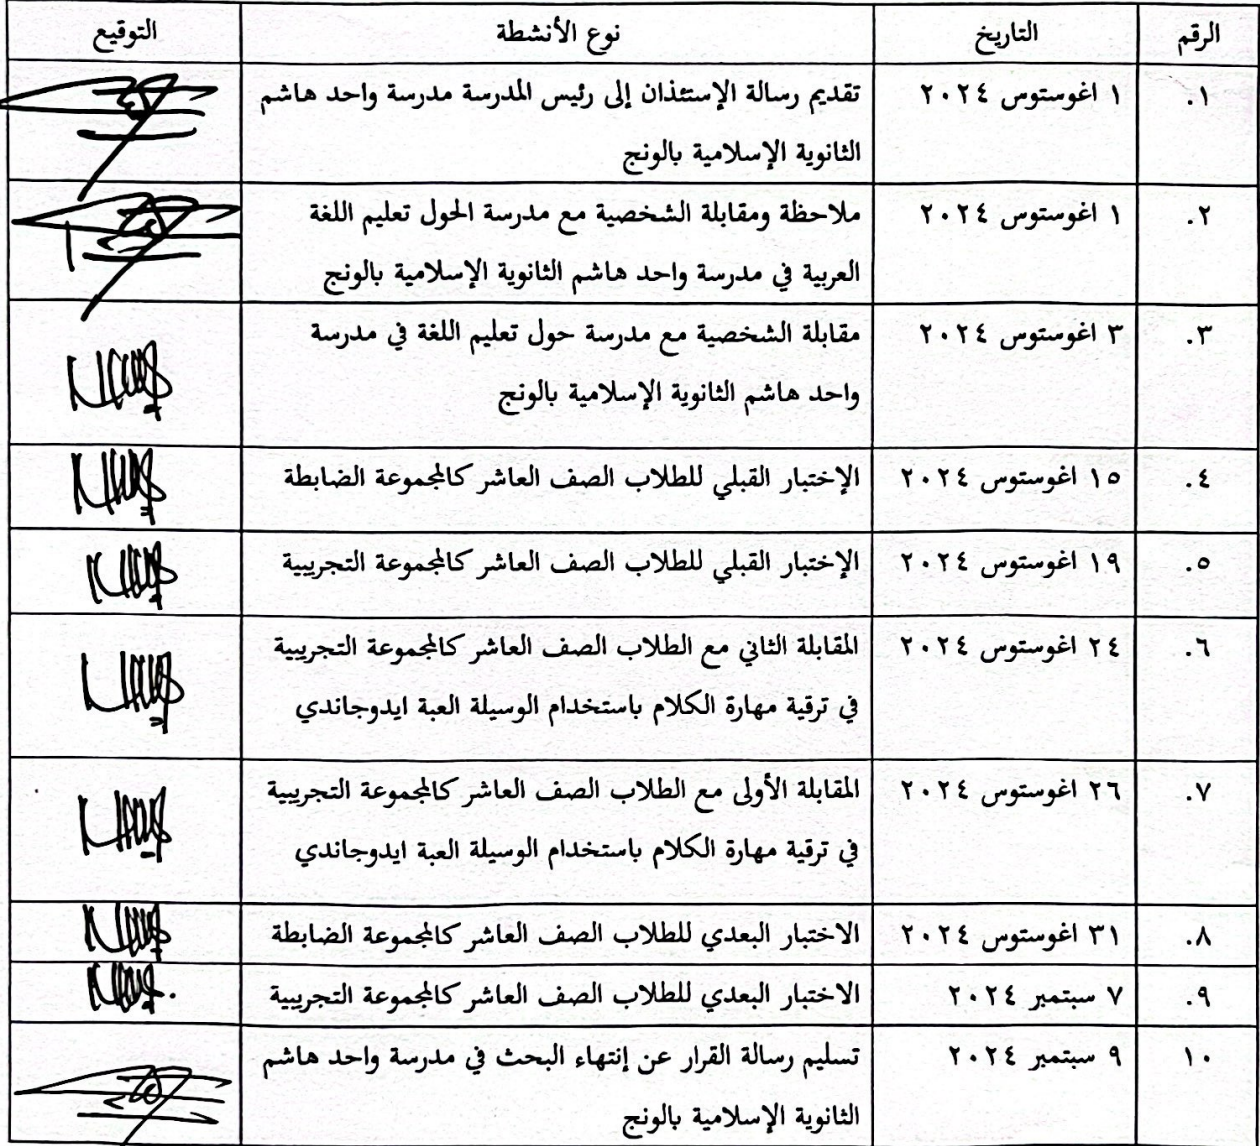 الرقم التاريخ نوع الأنشطة التوقيع
١. ١ اغوستوس ٢٠٢٤ تقديم رسالة الإستئذان إلى رئيس المدرسة مدرسة واحد هاشم
الثانوية الإسلامية بالونج
٢. ١ اغوستوس ٢٠٢٤ ملاحظة ومقابلة الشخصية مع مدرسة الحول تعليم اللغة
العربية في مدرسة واحد هاشم الثانوية الإسلامية بالونج
٣. ٣ اغوستوس ٢٠٢٤ مقابلة الشخصية مع مدرسة حول تعليم اللغة في مدرسة
واحد هاشم الثانوية الإسلامية بالونج
٤. ١٥ اغوستوس ٢٠٢٤ الإختبار القبلي للطلاب الصف العاشر كالمجموعة الضابطة
٥. ١٩ اغوستوس ٢٠٢٤ الإختبار القبلي للطلاب الصف العاشر كالمجموعة التجريبية
٦. ٢٤ اغوستوس ٢٠٢٤ المقابلة الثاني مع الطلاب الصف العاشر كالمجموعة التجريبية
في ترقية مهارة الكلام باستخدام الوسيلة العبة ايدوجاندي
٧. ٢٦ اغوستوس ٢٠٢٤ المقابلة الأولى مع الطلاب الصف العاشر كالمجموعة التجريبية
في ترقية مهارة الكلام باستخدام الوسيلة العبة ايدوجاندي
٨. ٣١ اغوستوس ٢٠٢٤ الاختبار البعدي للطلاب الصف العاشر كالمجموعة الضابطة
٩. ٧ سبتمبر ٢٠٢٤ الاختبار البعدي للطلاب الصف العاشر كالمجموعة التجريبية
١٠. ٩ سبتمبر ٢٠٢٤ تسليم رسالة القرار عن إنتهاء البحث في مدرسة واحد هاشم
الثانوية الإسلامية بالونج